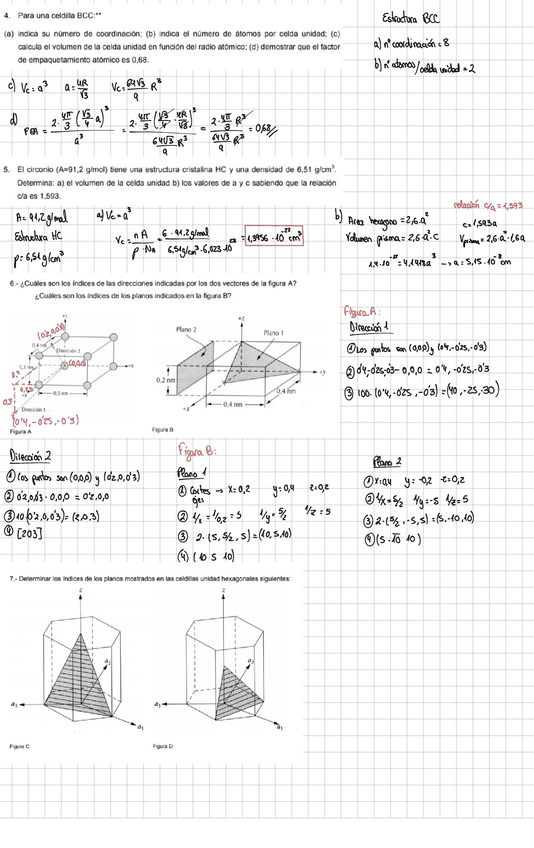 4. Para una celdilla BCC:**
(a) indica su número de coordinación; (b) indica el número de átomos por celda unidad; (c)
calcula el volumen de la celda unidad en función del radio atómico; (d) demostrar que el factor
de empaquetamiento atómico es 0,68.
Estructura BCC
a) nº coordinación = 8
b) nº átomos/celda unidad = 2
c) Vc = a³ a = 4R/√3 Vc = 64√3/9 R³
d) FEA = 2·4π/3 (√3/4 a)³/a³ = 2·4π/3 (√3/4 · 4R/√3)³/64√3/9 R³ = 2·4π/3 R³/64√3/9 R³ = 0,68//
5. El circonio (A=91,2 g/mol) tiene una estructura cristalina HC y una densidad de 6,51 g/cm³.
Determina: a) el volumen de la celda unidad b) los valores de a y c sabiendo que la relación
c/a es 1,593.
A = 91,2 g/mol
Estructura HC
ρ = 6,51 g/cm³
a) Vc = a³
Vc = n A/ρ · NA = 6 · 91,2 g/mol/6,51 g/cm³ · 6,023·10²³ = 1,3956 · 10⁻²² cm³
relación c/a = 1,593
b) Area hexagono = 2,6·a² c = 1,593a
Volumen prisma = 2,6·a²·c Vprisma = 2,6·a²·1,6a
a = 5,15·10⁻⁸ cm
6.- ¿Cuáles son los índices de las direcciones indicadas por los dos vectores de la figura A?
¿Cuáles son los índices de los planos indicados en la figura B?
(0'2,0,0'3)
+z
0,4 nm
Dirección 2
0,3 nm
(0,0,0)
+y
0,5 nm
+x
0,5
Dirección 1
(0'4,-0'25,-0'3)
Figura A
+z
Plano 2
Plano 1
0,2 nm
+y
0,4 nm
+x
0,4 nm
Figura B
Figura A:
Dirección 1
① Los puntos son (0,0,0) y (0'4,-0'25,-0'3)
② 0'4,-0'25,-0'3 - 0,0,0 = 0'4, -0'25, -0'3
③ 100·(0'4,-0'25,-0'3) = (40,-25,-30)
Dirección 2
① Los puntos son (0,0,0) y (0'2,0,0'3)
② 0'2,0,0'3 - 0,0,0 = 0'2,0,0
③ 10·(0'2,0,0'3) = (2,0,3)
④ [203]
Figura B:
Plano 1
① Cortes ejes → x = 0,2 y = 0,4 z = 0,2
② 1/x = 1/0,2 = 5 1/y = 5/2 1/z = 5
③ 2·(5, 5/2, 5) = (10,5,10)
④ (10 5 10)
Plano 2
① x = 0,4 y = -0,2 z = 0,2
② 1/x = 5/2 1/y = -5 1/z = 5
③ 2·(5/2, -5, 5) = (5,-10,10)
④ (5 -10 10)
7.- Determinar los índices de los planos mostrados en las celdillas unidad hexagonales siguientes:
z
a₂
a₃
a₁
Figura C
z
a₂
a₃
a₁
Figura D